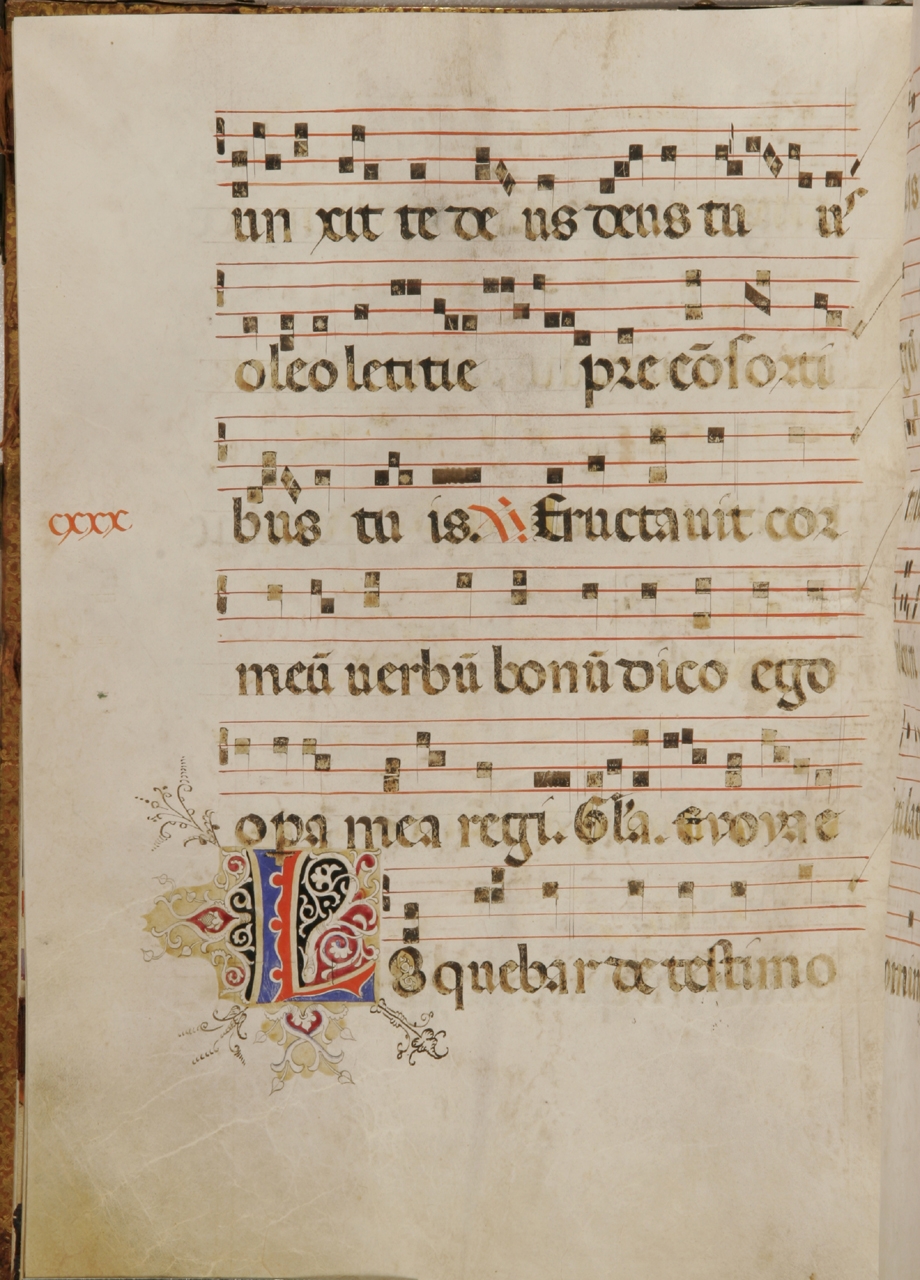 un xit te de us deus tu us
oleo letitie pre cōsorti
cxxx
bus tu is. V. Eructauit cor
meū uerbū bonū dico ego
opa mea regi. Gl'a. euouae
LOquebar de testimo